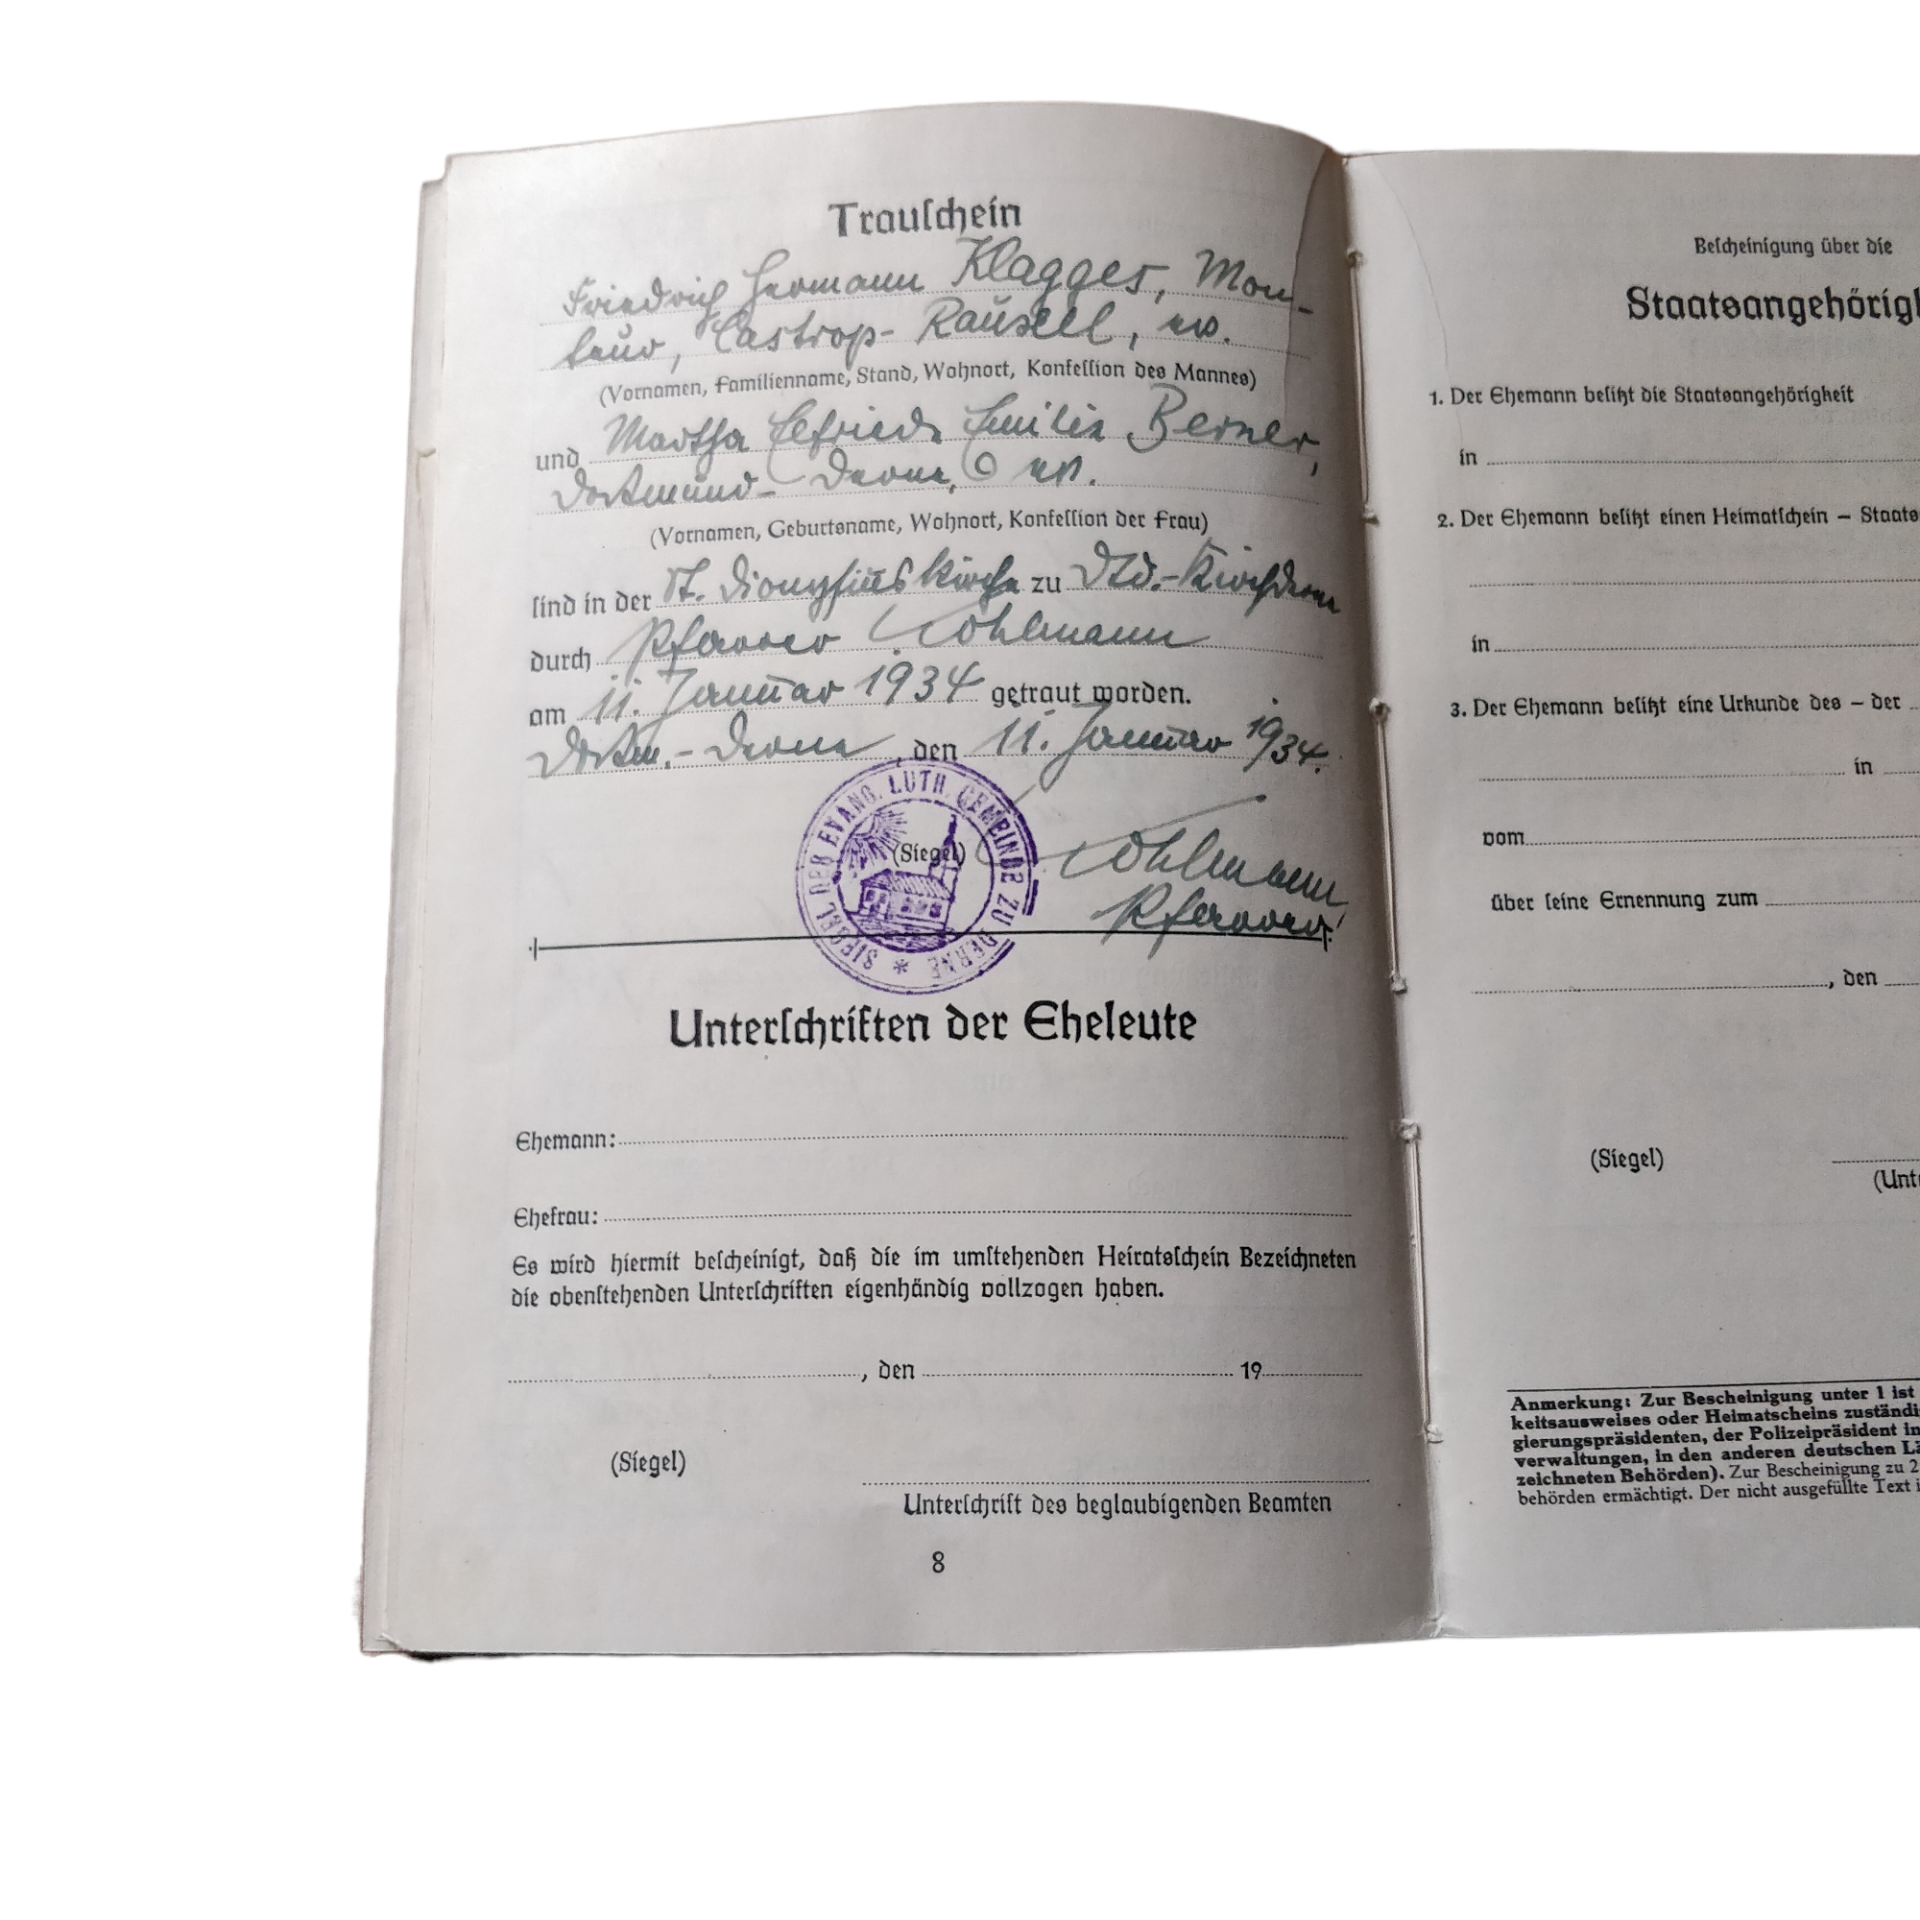 Trauschein
Friedrich Hermann Klagges, Mon-
teur, Castrop-Rauxell, ev.
(Vornamen, Familienname, Stand, Wohnort, Konfession des Mannes)
und Martha Elfriede Emilie Berner,
Dortmund-Derne, ev.
(Vornamen, Geburtsname, Wohnort, Konfession der Frau)
sind in der St. Dionysius Kirche zu Dtd.-Kirchderne
durch Pfarrer Köhlmann
am 11. Januar 1934 getraut worden.
Dortm.-Derne, den 11. Januar 1934.
SIEGEL DER EVANG. LUTH. GEMEINDE ZU DERNE *
(Siegel)
Köhlmann
Pfarrer
Unterschriften der Eheleute
Ehemann:
Ehefrau:
Es wird hiermit bescheinigt, daß die im umstehenden Heiratsschein Bezeichneten
die obenstehenden Unterschriften eigenhändig vollzogen haben.
, den 19
(Siegel)
Unterschrift des beglaubigenden Beamten
8
Bescheinigung über die
Staatsangehörig
1. Der Ehemann besitzt die Staatsangehörigkeit
in
2. Der Ehemann besitzt einen Heimatschein – Staats
in
3. Der Ehemann besitzt eine Urkunde des – der
in
vom
über seine Ernennung zum
, den
(Siegel)
(Unt
Anmerkung: Zur Bescheinigung unter 1 ist
keitsausweises oder Heimatscheins zuständi
gierungspräsidenten, der Polizeipräsident in
verwaltungen, in den anderen deutschen Lä
zeichneten Behörden). Zur Bescheinigung zu 2
behörden ermächtigt. Der nicht ausgefüllte Text i